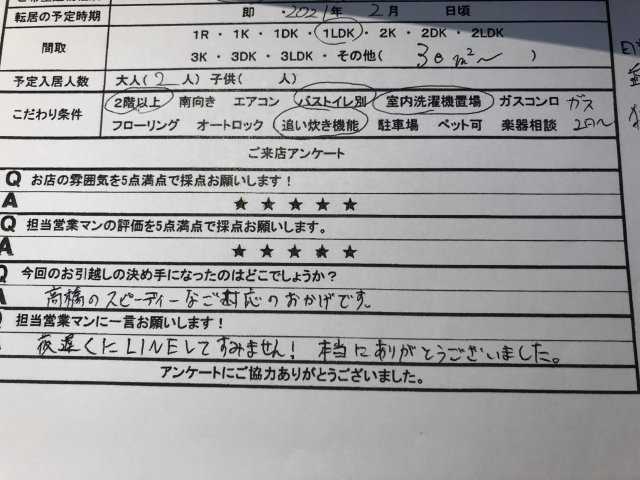 転居の予定時期 即 ・2021年 2月 日頃
間取 1R ・ 1K ・ 1DK ・ 1LDK ・ 2K ・ 2DK ・ 2LDK
3K ・ 3DK ・ 3LDK ・ その他( 30m²〜 )
予定入居人数 大人( 2人) 子供( 人)
こだわり条件 2階以上 南向き エアコン バストイレ別 室内洗濯機置場 ガスコンロ ガス
フローリング オートロック 追い炊き機能 駐車場 ペット可 楽器相談 2口〜
ご来店アンケート
Q お店の雰囲気を5点満点で採点お願いします!
A ★ ★ ★ ★ ★
Q 担当営業マンの評価を5点満点で採点お願いします。
A ★ ★ ★ ★ ★
Q 今回のお引越しの決め手になったのはどこでしょうか?
A 高橋のスピーディーなご対応のおかげです。
Q 担当営業マンに一言お願いします!
夜遅くにLINEしてすみません! 本当にありがとうございました。
アンケートにご協力ありがとうございました。